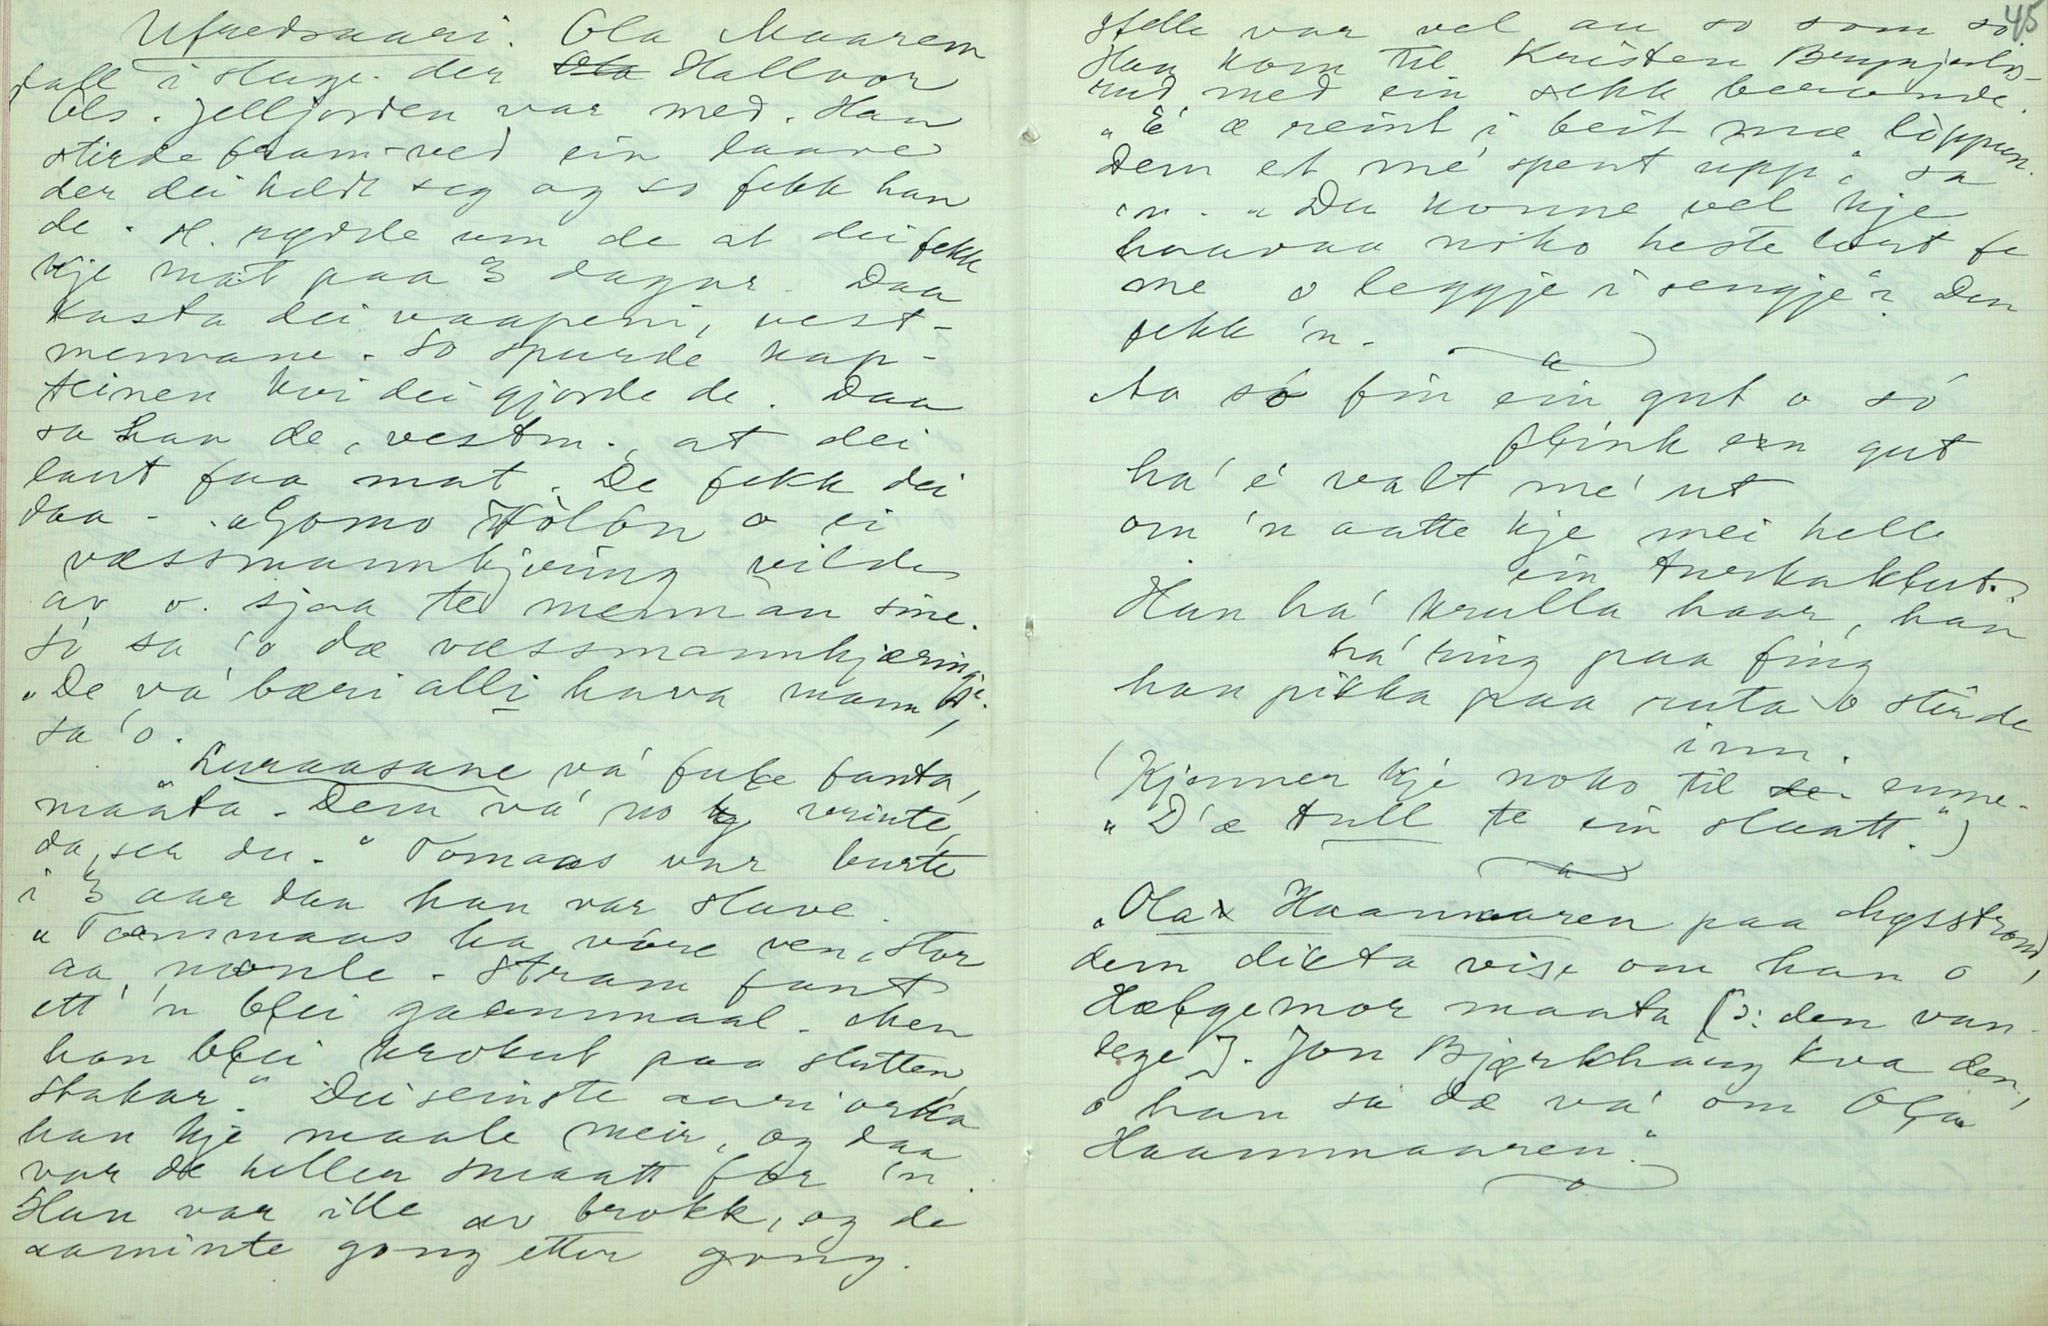 Ufredsaari. Ola Maarem
fall i slage. der Ola Hallvor
Ols. Jelljorden var med. Han
stirde fram-ved ein laave
der dei heldt seg og so fekk han
de. H. rødde um de at dei fekk
kje mat paa 3 dagar. Daa
kasta dei vaapeni, vest-
mennane. So spurde kap-
teinen kvi dei gjorde de. Daa
sa han de, vestm., at dei
laut faa mat. De fekk dei
daa - "Gomo Hòlòn o ei
væssmannkjering vilde
av o. sjaa te mennan sine.
Sò sa 'o dæ væssmannkjæringje.
"De va' bæri alli hava mann",
sa 'o.
"Luraasane va' fule fanta,
maata. Dem va' no kj verinte,
da, ser du." Tomaas var burte
i 3 aar daa han var slave.
"Tommaas ha vøre ven, stor
aa, maale. Stram fant
ett 'n blei gaammaal. Men
han blei krokut paa slutten,
stakar." Dei seinste aari orka
han kje maale meir, og daa
var de heller smaatt før 'n.
Han var ille av brokk, og de
aaminte gong etter gong.
45
Ifelle var vel au so som so
Han kom til Kristen Brynjuls-
rud med ein sekk berande.
"E' æ reint i beit mæ lòppun.
Dem et me' spent upp", sa
'n. "Du konne vel kje
haavaa noko heste laust fe
me o leggje i sengje"? Den
fekk 'n.
Aa sò fin ein gut o sò
flink ein gut
ha' e' valt me' ut
om 'n aatte kje mei helle
ein turkaklut.
Han ha' krulla haar, han
ha' ring paa fing
han pikka paa ruta o stirde
inn.
(Kjenner kje noko til se emne.
"D'æ tull te ein slaatt.")
"Ola Haammaaren paa Lysstrand,
dem dikta vise om han o
Hælgemor maata (ɔ: den van-
lege). Jon Bjørkhaug kva den,
o han sa dæ va' om Ola
Haammaaren."